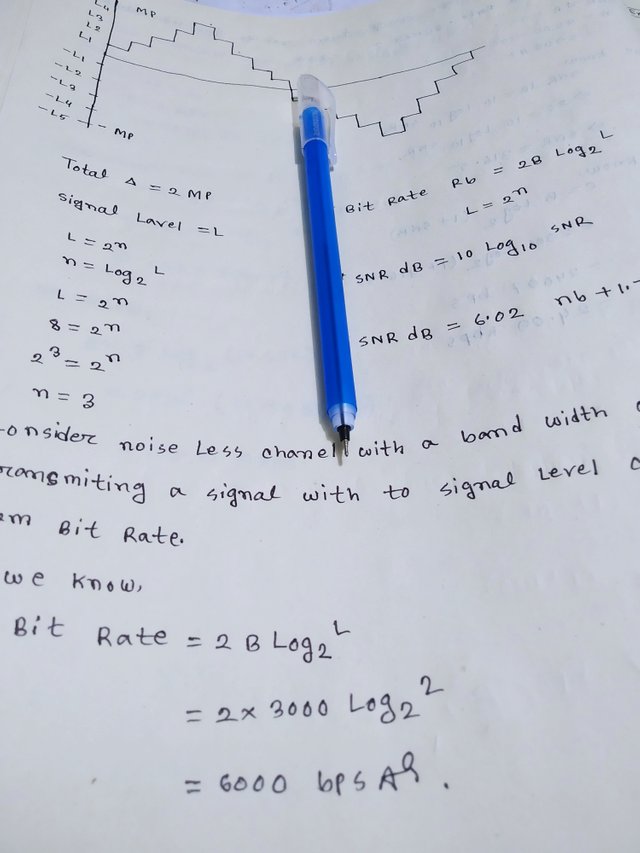 L4 MP
L3
L2
L1
-L1
-L2
-L3
-L4
-L5 - MP
Total Δ = 2 MP
Signal Lavel = L
L = 2ⁿ
n = Log₂ L
L = 2ⁿ
8 = 2ⁿ
2³ = 2ⁿ
n = 3
Bit Rate Rb = 2B Log₂ L
L = 2ⁿ
SNR dB = 10 Log₁₀ SNR
SNR dB = 6.02 nb + 1.
onsider noise Less chanel with a band width
ransmiting a signal with to signal Level
em Bit Rate.
we know,
Bit Rate = 2 B Log₂ L
= 2 × 3000 Log₂ 2
= 6000 bps